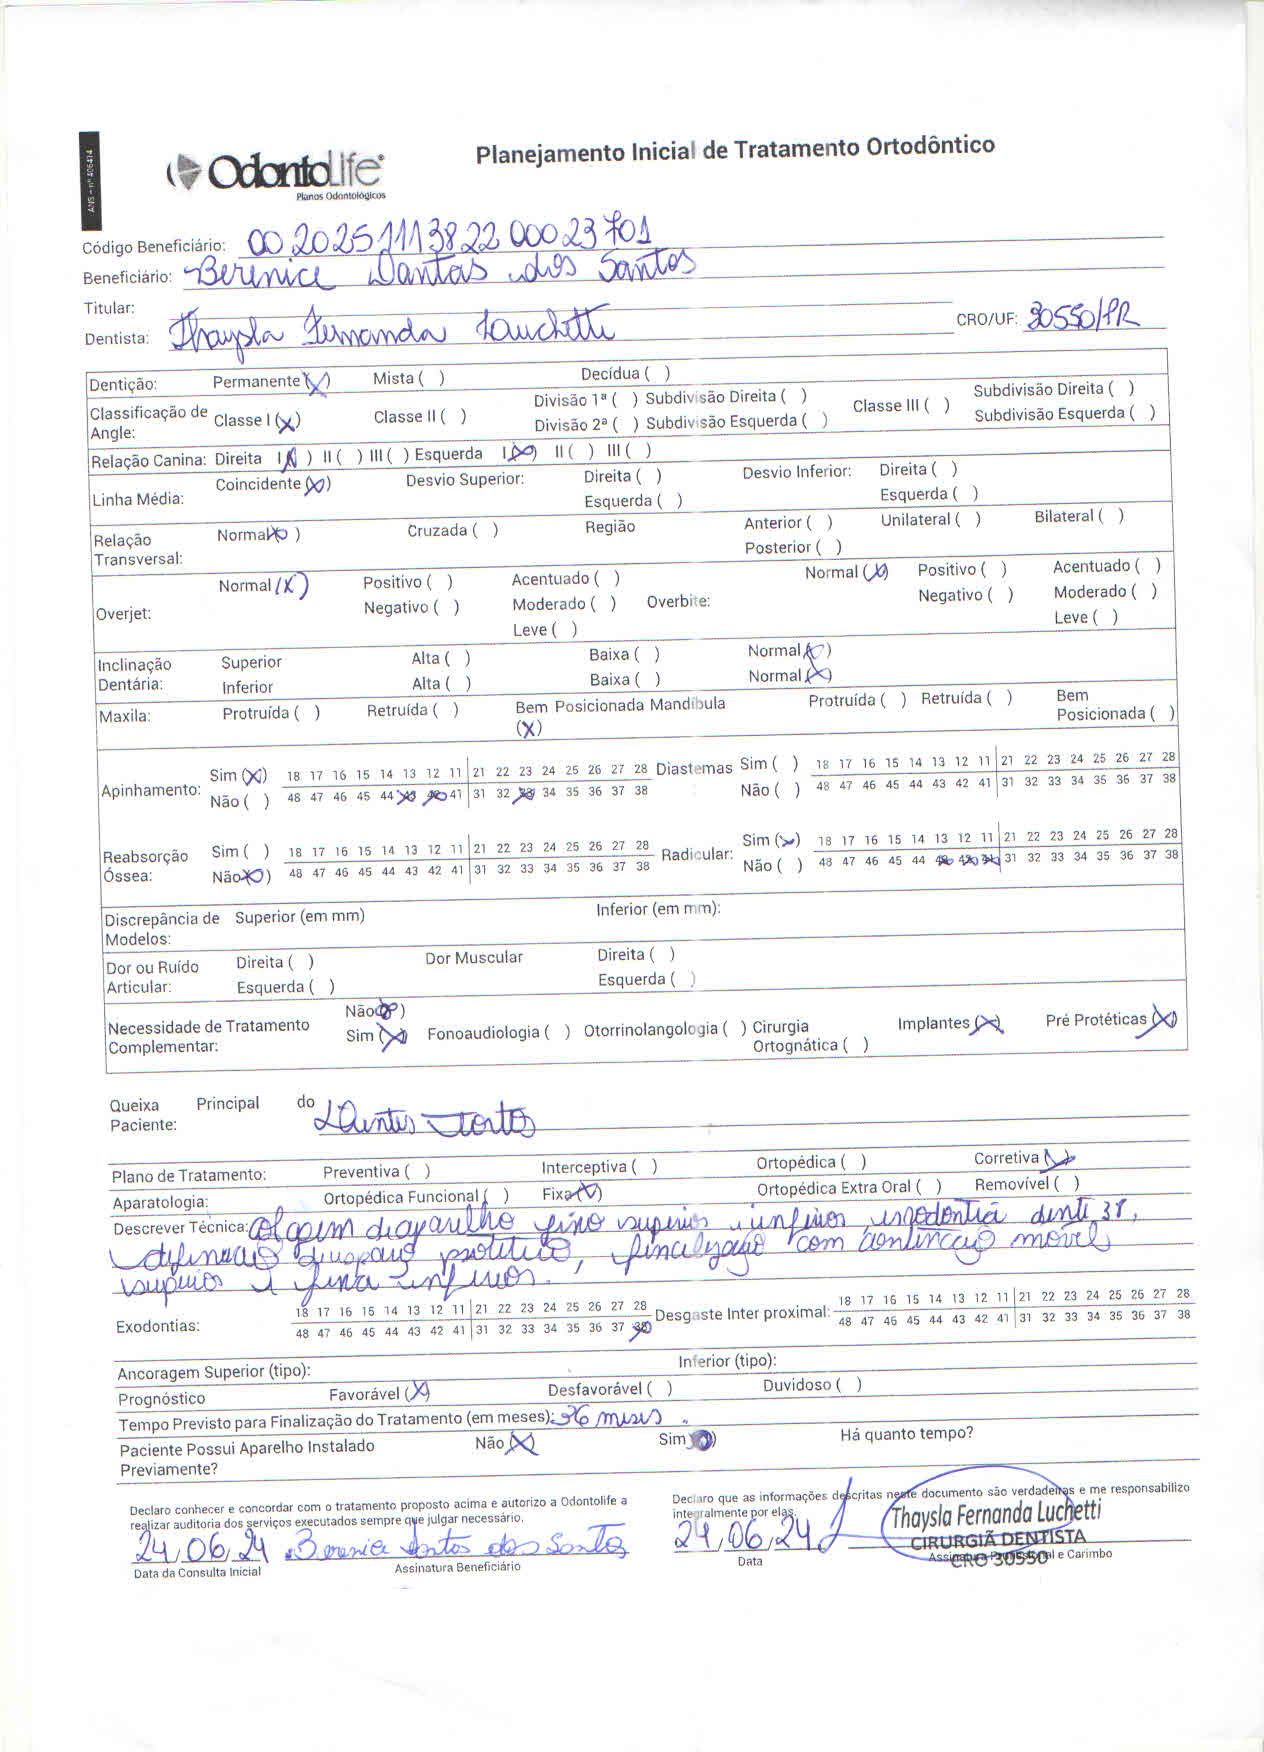 ANS - nº 406414
OdontoLife
Planos Odontológicos
Planejamento Inicial de Tratamento Ortodôntico
Código Beneficiário: 00 2025 1113822 00023701
Beneficiário: Berenice Dantas dos Santos
Titular:
Dentista: Thaysla Fernanda Luchetti CRO/UF: 30550/PR
Dentição: Permanente (X) Mista ( ) Decídua ( )
Classificação de Angle: Classe I (X) Classe II ( ) Divisão 1ª ( ) Subdivisão Direita ( ) Divisão 2ª ( ) Subdivisão Esquerda ( ) Classe III ( ) Subdivisão Direita ( ) Subdivisão Esquerda ( )
Relação Canina: Direita I (X) II ( ) III ( ) Esquerda I (X) II ( ) III ( )
Linha Média: Coincidente (X) Desvio Superior: Direita ( ) Esquerda ( ) Desvio Inferior: Direita ( ) Esquerda ( )
Relação Transversal: Normal (X) Cruzada ( ) Região Anterior ( ) Posterior ( ) Unilateral ( ) Bilateral ( )
Overjet: Normal (X) Positivo ( ) Negativo ( ) Acentuado ( ) Moderado ( ) Leve ( ) Overbite: Normal (X) Positivo ( ) Negativo ( ) Acentuado ( ) Moderado ( ) Leve ( )
Inclinação Dentária: Superior Alta ( ) Baixa ( ) Normal (X)
Inferior Alta ( ) Baixa ( ) Normal (X)
Maxila: Protruída ( ) Retruída ( ) Bem Posicionada (X) Mandíbula Protruída ( ) Retruída ( ) Bem Posicionada ( )
Apinhamento: Sim (X) 18 17 16 15 14 13 12 11 21 22 23 24 25 26 27 28 Diastemas Sim ( ) 18 17 16 15 14 13 12 11 21 22 23 24 25 26 27 28
Não ( ) 48 47 46 45 44 43 42 41 31 32 33 34 35 36 37 38 Não ( ) 48 47 46 45 44 43 42 41 31 32 33 34 35 36 37 38
Reabsorção Óssea: Sim ( ) 18 17 16 15 14 13 12 11 21 22 23 24 25 26 27 28 Radicular: Sim (X) 18 17 16 15 14 13 12 11 21 22 23 24 25 26 27 28
Não (X) 48 47 46 45 44 43 42 41 31 32 33 34 35 36 37 38 Não ( ) 48 47 46 45 44 43 42 41 31 32 33 34 35 36 37 38
Discrepância de Modelos: Superior (em mm) Inferior (em mm):
Dor ou Ruído Articular: Direita ( ) Esquerda ( ) Dor Muscular Direita ( ) Esquerda ( )
Necessidade de Tratamento Complementar: Não ( ) Sim (X) Fonoaudiologia ( ) Otorrinolangologia ( ) Cirurgia Ortognática ( ) Implantes (X) Pré Protéticas (X)
Queixa Principal do Paciente: Dentes tortos
Plano de Tratamento: Preventiva ( ) Interceptiva ( ) Ortopédica ( ) Corretiva (X)
Aparatologia: Ortopédica Funcional ( ) Fixa (X) Ortopédica Extra Oral ( ) Removível ( )
Descrever Técnica: Colagem de aparelho fixo superior e inferior, exodontia dente 38,
definição de espaço protético, finalização com contenção móvel
superior e fixa inferior.
Exodontias: 18 17 16 15 14 13 12 11 21 22 23 24 25 26 27 28 Desgaste Inter proximal: 18 17 16 15 14 13 12 11 21 22 23 24 25 26 27 28
48 47 46 45 44 43 42 41 31 32 33 34 35 36 37 38 48 47 46 45 44 43 42 41 31 32 33 34 35 36 37 38
Ancoragem Superior (tipo): Inferior (tipo):
Prognóstico Favorável (X) Desfavorável ( ) Duvidoso ( )
Tempo Previsto para Finalização do Tratamento (em meses): 36 meses.
Paciente Possui Aparelho Instalado Previamente? Não (X) Sim ( ) Há quanto tempo?
Declaro conhecer e concordar com o tratamento proposto acima e autorizo a Odontolife a
realizar auditoria dos serviços executados sempre que julgar necessário.
24/06/24 Berenice Santos dos Santos
Data da Consulta Inicial Assinatura Beneficiário
Declaro que as informações descritas neste documento são verdadeiras e me responsabilizo
integralmente por elas.
24/06/24
Data Assinatura Profissional e Carimbo
Thaysla Fernanda Luchetti
CIRURGIÃ DENTISTA
CRO 30550